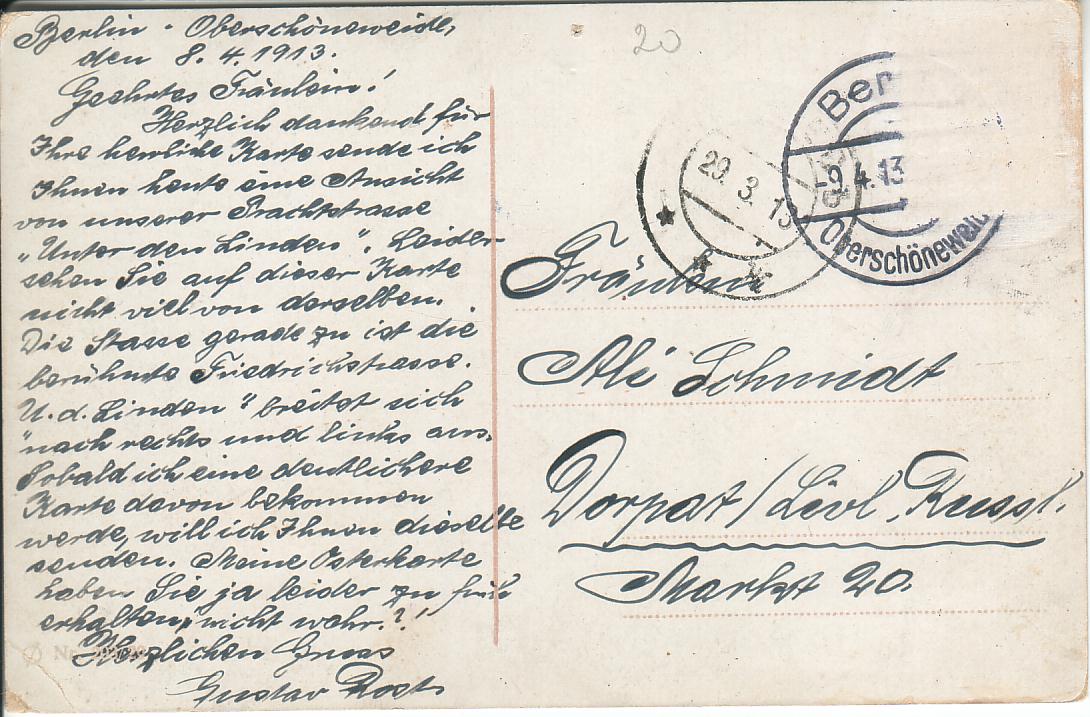 Berlin - Oberschöneweide,
den 8. 4. 1913.
Geehrtes Fräulein!
Herzlich dankend für
Ihre herrliche Karte sende ich
Ihnen heute eine Ansicht
von unserer Prachtstrasse
„Unter den Linden". Leider
sehen Sie auf dieser Karte
nicht viel von derselben.
Die Stasse gerade zu ist die
berühmte Friedrichstrasse.
„U. d. Linden" breitet sich
nach rechts und links aus.
Sobald ich eine deutlichere
Karte davon bekommen
werde, will ich Ihnen dieselbe
senden. Meine Osterkarte
haben Sie ja leider zu früh
erhalten, nicht wahr?!
Herzlichen Gruss
Gustav Rost
20
29. 3. 13
Ber
-9. 4. 13
Oberschöneweide
Fräulein
Ale Schmidt
Dorpat / Livl. Russl.
Markt 20.
Nr.